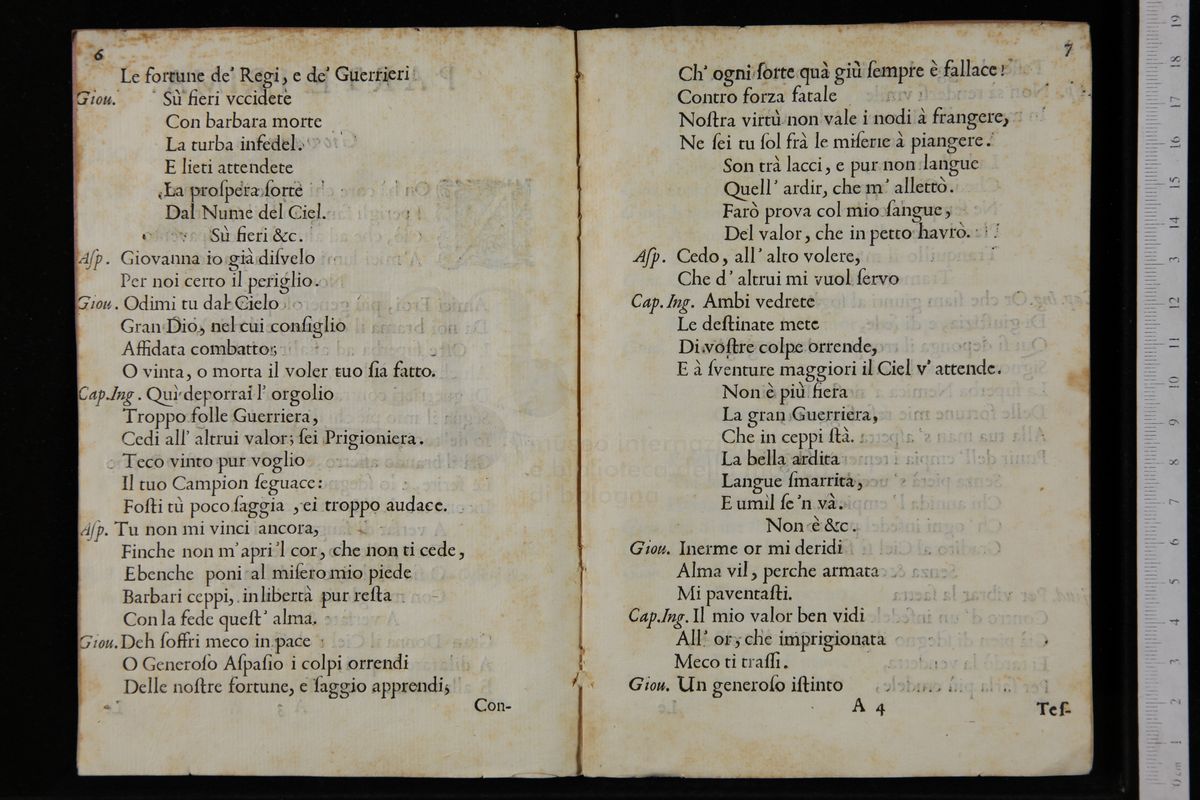 6
Le fortune de' Regi, e de' Guerrieri
Giou. Sù fieri vccidete
Con barbara morte
La turba infedel.
E lieti attendete
La proſpera ſorte
Dal Nume del Ciel.
Sù fieri &c.
Aſp. Giovanna io già diſvelo
Per noi certo il periglio.
Giou. Odimi tu dal Cielo
Gran Dio, nel cui conſiglio
Affidata combatto;
O vinta, o morta il voler tuo ſia fatto.
Cap.Ing. Quì deporrai l' orgolio
Troppo folle Guerriera,
Cedi all' altrui valor; ſei Prigioniera.
Teco vinto pur voglio
Il tuo Campion ſeguace:
Foſti tù poco ſaggia, ei troppo audace.
Aſp. Tu non mi vinci ancora,
Finche non m'apri 'l cor, che non ti cede,
Ebenche poni al miſero mio piede
Barbari ceppi, in libertà pur reſta
Con la fede queſt' alma.
Giou. Deh ſoffri meco in pace
O Generoſo Aſpaſio i colpi orrendi
Delle noſtre fortune, e ſaggio apprendi,
Con-
7
Ch' ogni ſorte quà giù ſempre è fallace!
Contro forza fatale
Noſtra virtù non vale i nodi à frangere,
Ne ſei tu ſol frà le miſerie à piangere.
Son trà lacci, e pur non langue
Quell' ardir, che m' allettò.
Farò prova col mio ſangue,
Del valor, che in petto havrò.
Aſp. Cedo, all' alto volere,
Che d' altrui mi vuol ſervo
Cap. Ing. Ambi vedrete
Le deſtinate mete
Di voſtre colpe orrende,
E à ſventure maggiori il Ciel v' attende.
Non è più fiera
La gran Guerriera,
Che in ceppi ſtà.
La bella ardita
Langue ſmarrita,
E umil ſe 'n và.
Non è &c.
Giou. Inerme or mi deridi
Alma vil, perche armata
Mi paventaſti.
Cap.Ing. Il mio valor ben vidi
All' or, che imprigionata
Meco ti traſſi.
Giou. Un generoſo iſtinto
A 4
Teſ-
museo internazionale
e biblioteca della
di bologna